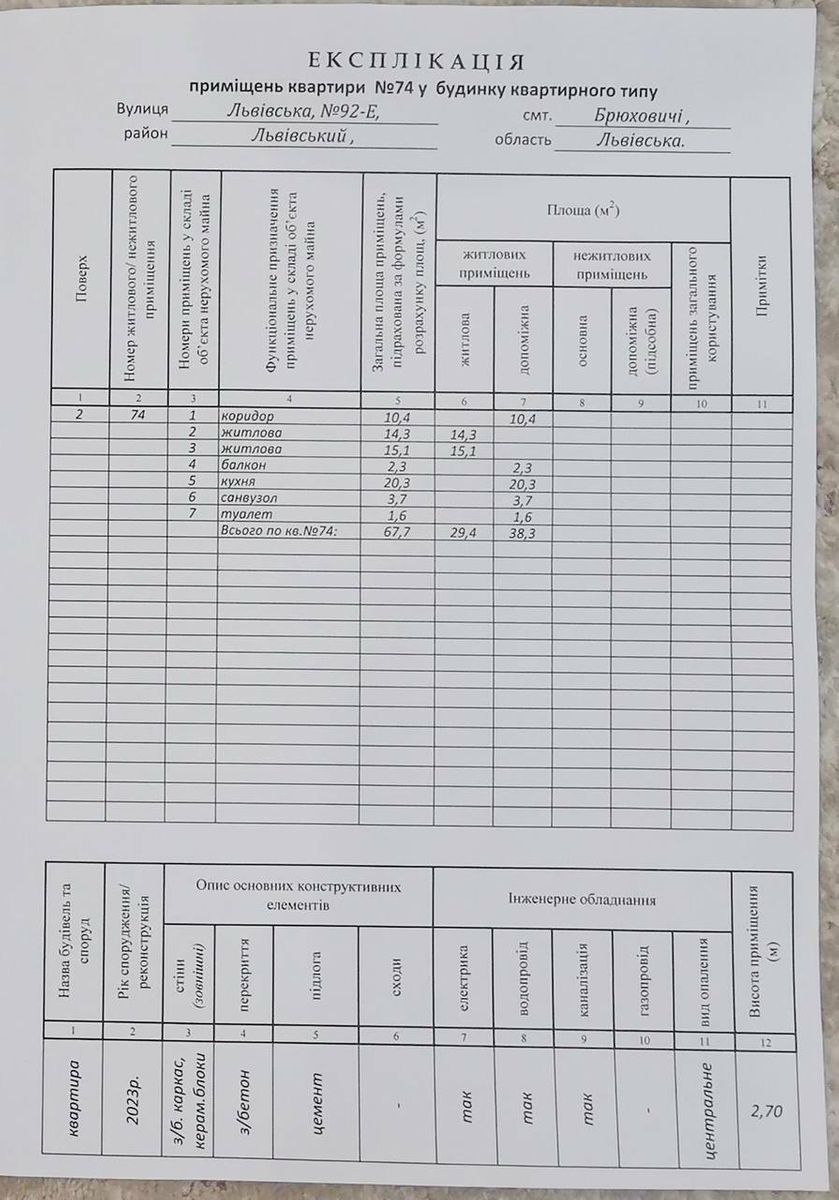 ЕКСПЛІКАЦІЯ
приміщень квартири №74 у будинку квартирного типу
Вулиця Львівська, №92-Е, смт. Брюховичі,
район Львівський, область Львівська.
Поверх
Номер житлового/ нежитлового приміщення
Номери приміщень у складі об'єкта нерухомого майна
Функціональне призначення приміщень у складі об'єкта нерухомого майна
Загальна площа приміщень, підрахована за формулами розрахунку площ, (м²)
Площа (м²)
житлових приміщень
нежитлових приміщень
житлова
допоміжна
основна
допоміжна (підсобна)
приміщень загального користування
Примітки
1 2 3 4 5 6 7 8 9 10 11
2 74 1 коридор 10,4 10,4
2 житлова 14,3 14,3
3 житлова 15,1 15,1
4 балкон 2,3 2,3
5 кухня 20,3 20,3
6 санвузол 3,7 3,7
7 туалет 1,6 1,6
Всього по кв.№74: 67,7 29,4 38,3
Назва будівель та споруд
Рік спорудження/ реконструкція
Опис основних конструктивних елементів
Інженерне обладнання
Висота приміщення (м)
стіни (зовнішні)
перекриття
підлога
сходи
електрика
водопровід
каналізація
газопровід
вид опалення
1 2 3 4 5 6 7 8 9 10 11 12
квартира 2023р. з/б. каркас, керам.блоки з/бетон цемент - так так так - центральне 2,70